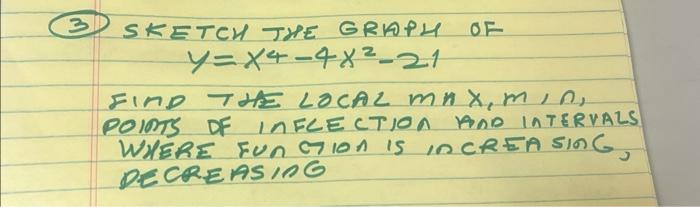 ③ SKETCH THE GRAPH OF
y = x⁴ - 4x² - 21
FIND THE LOCAL MAX, MIN,
POINTS OF INFLECTION AND INTERVALS
WHERE FUNCTION IS INCREASING,
DECREASING